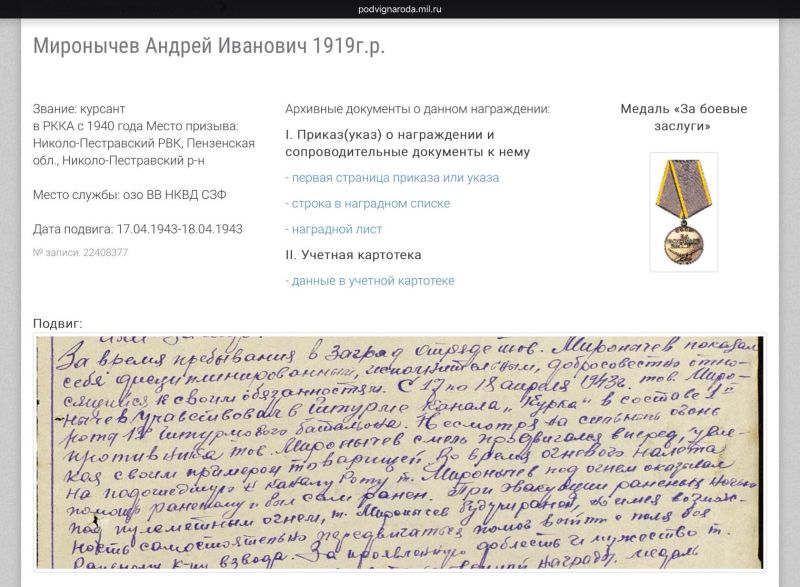 podvignaroda.mil.ru
Миронычев Андрей Иванович 1919г.р.
Звание: курсант
в РККА с 1940 года Место призыва:
Николо-Пестравский РВК, Пензенская
обл., Николо-Пестравский р-н
Место службы: озо ВВ НКВД СЗФ
Дата подвига: 17.04.1943-18.04.1943
№ записи: 22408377
Архивные документы о данном награждении:
I. Приказ(указ) о награждении и
сопроводительные документы к нему
- первая страница приказа или указа
- строка в наградном списке
- наградной лист
II. Учетная картотека
- данные в учетной картотеке
Медаль «За боевые
заслуги»
Подвиг:
За время пребывания в заград отряде тов. Миронычев показал
себя дисциплинированным, исполнительным, добросовестно отно-
сящимся к своим обязанностям. С 17 по 18 апреля 1943г. тов. Миро-
нычев участвовал в штурме канала "Курка" в составе 1й
роты штурмового батальона. Несмотря на сильный огонь
противника тов. Миронычев смело продвигался вперед, увле-
кая своим примером товарищей. Во время огневого налета
на подошедшую к каналу роту т. Миронычев под огнем оказывал
помощь раненому и был сам ранен. При эвакуации раненых ночью
под пулеметным огнем, т. Миронычев будучи раненой, но имея возмож-
ность самостоятельно передвигаться помог с поля боя
раненому к-ру взвода. За проявленную доблесть и мужество т.
награды медаль